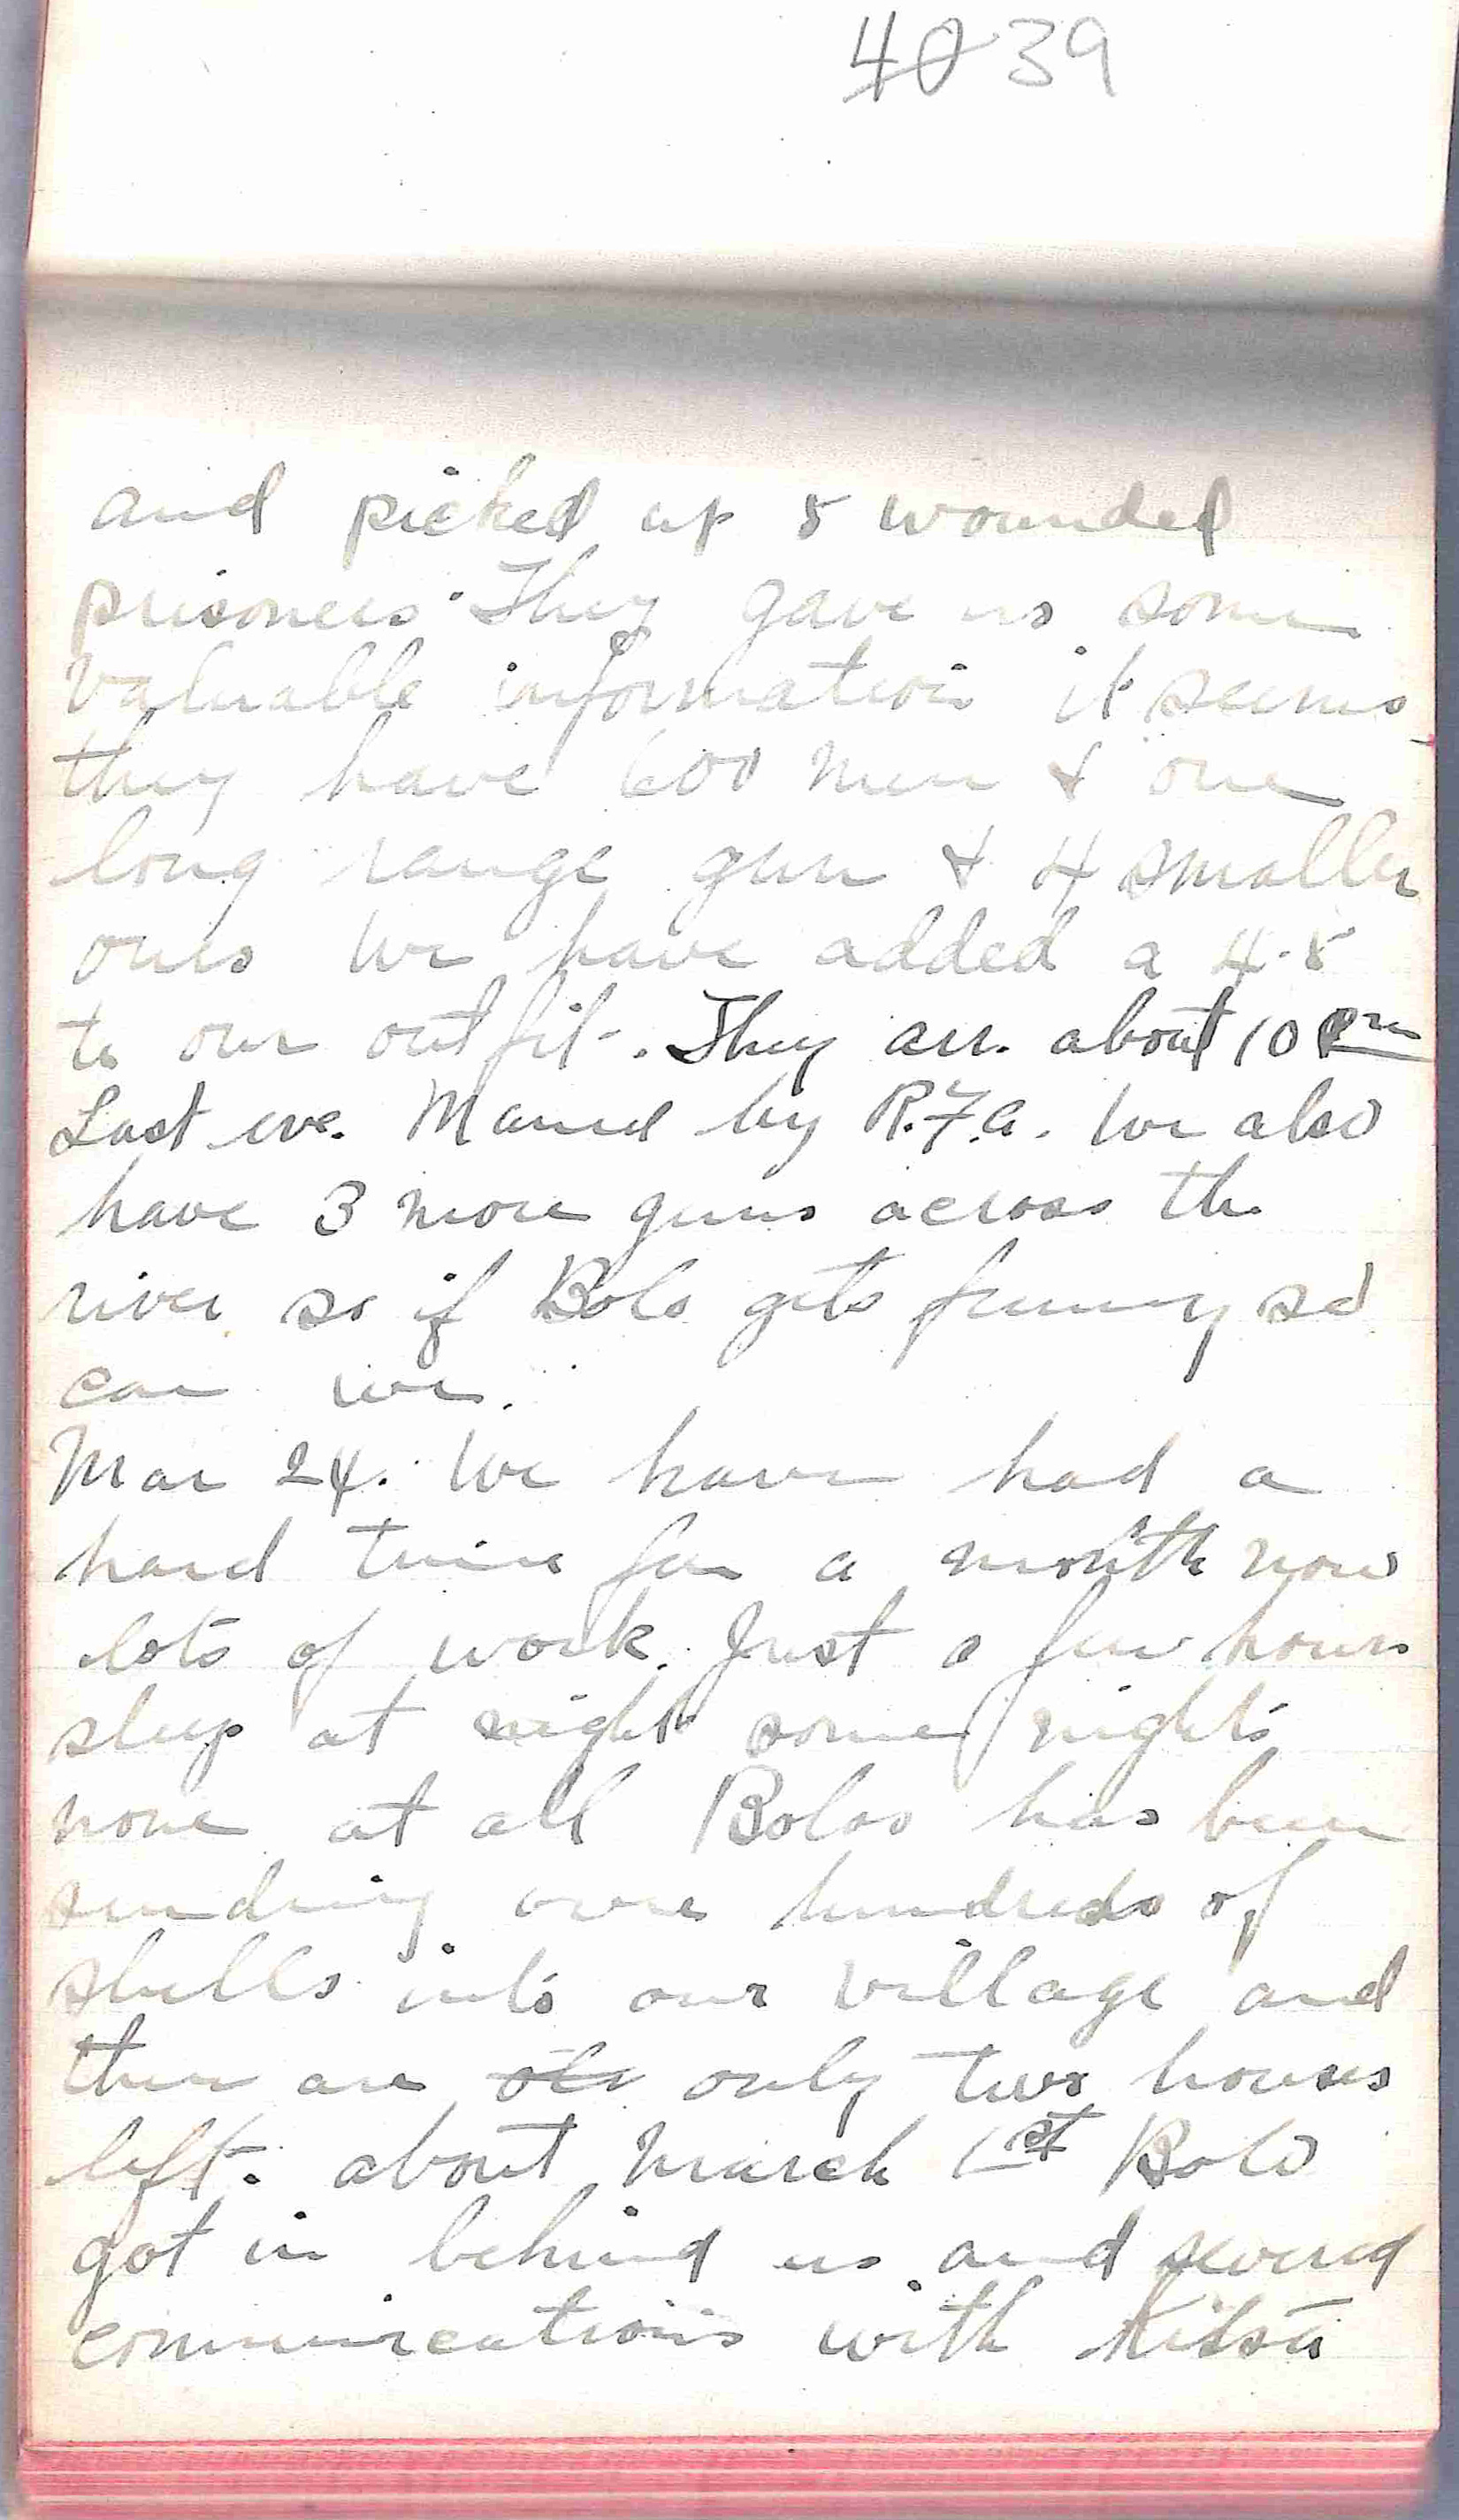 ~~40~~ 39
and picked up 8 wounded
prisoners. They gave us some
valuable information it seems
they have 600 men & one
long range gun & 4 smaller
ones We have added a 4.5
to our outfit. They arr. about 10 Pm
Last eve. Maned by R.F.A. We also
have 3 more guns across the
river so if Bolo gets funny so
can we.
Mar 24. We have had a
hard time for a month now
lots of work. Just a few hours
sleep at night some nights
none at all Bolos has been
sending over hundreds of
shells into our village and
there are only two houses
left. about March 1st Bolo
got in behind us and severed
communications with Kitsa